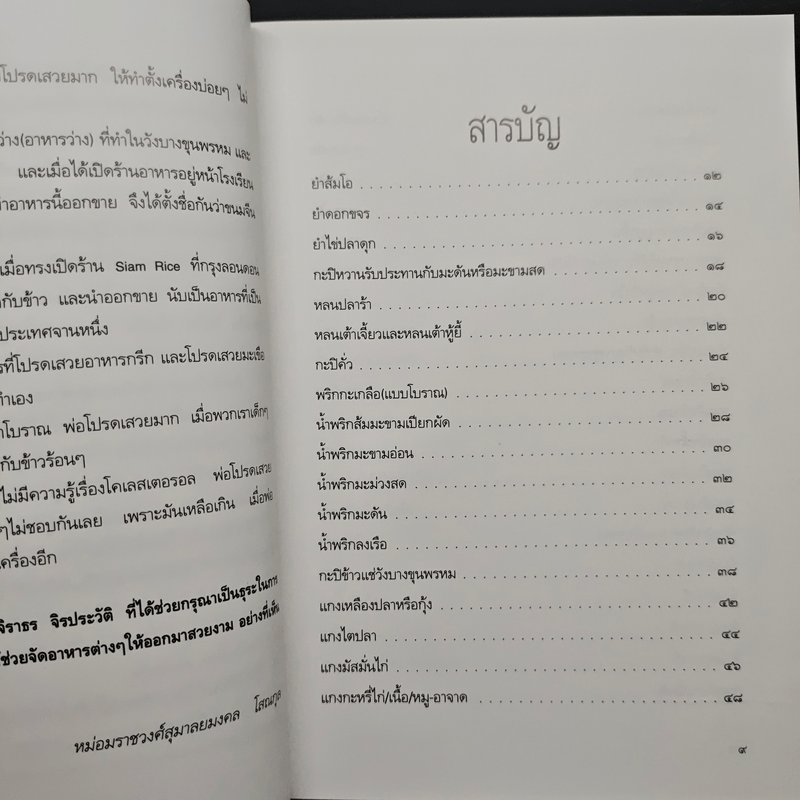 โปรดเสวยมาก ให้ทำตั้งเครื่องบ่อยๆ ไม่
ว่าง(อาหารว่าง) ที่ทำในวังบางขุนพรหม และ
และเมื่อได้เปิดร้านอาหารอยู่หน้าโรงเรียน
าอาหารนี้ออกขาย จึงได้ตั้งชื่อกันว่าขนมจีน
เมื่อทรงเปิดร้าน Siam Rice ที่กรุงลอนดอน
กับข้าว และนำออกขาย นับเป็นอาหารที่เป็น
ประเทศจานหนึ่ง
รที่โปรดเสวยอาหารกรีก และโปรดเสวยมะเขือ
ทำเอง
าโบราณ พ่อโปรดเสวยมาก เมื่อพวกเราเด็กๆ
กับข้าวร้อนๆ
ไม่มีความรู้เรื่องโคเลสเตอรอล พ่อโปรดเสวย
ๆไม่ชอบกันเลย เพราะมันเหลือเกิน เมื่อพ่อ
เครื่องอีก
จิราธร จิรประวัติ ที่ได้ช่วยกรุณาเป็นธุระในการ
ช่วยจัดอาหารต่างๆให้ออกมาสวยงาม อย่างที่เห็น
หม่อมราชวงศ์สุมาลยมงคล โสณกุล
สารบัญ
ยำส้มโอ ๑๒
ยำดอกขจร ๑๔
ยำไข่ปลาดุก ๑๖
กะปิหวานรับประทานกับมะดันหรือมะขามสด ๑๘
หลนปลาร้า ๒๐
หลนเต้าเจี้ยวและหลนเต้าหู้ยี้ ๒๒
กะปิคั่ว ๒๔
พริกกะเกลือ(แบบโบราณ) ๒๖
น้ำพริกส้มมะขามเปียกผัด ๒๘
น้ำพริกมะขามอ่อน ๓๐
น้ำพริกมะม่วงสด ๓๒
น้ำพริกมะดัน ๓๔
น้ำพริกลงเรือ ๓๖
กะปิข้าวแช่วังบางขุนพรหม ๓๘
แกงเหลืองปลาหรือกุ้ง ๔๒
แกงไตปลา ๔๔
แกงมัสมั่นไก่ ๔๖
แกงกะหรี่ไก่/เนื้อ/หมู-อาจาด ๔๘
๙